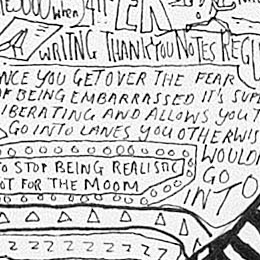 when
WRITING THANK YOU NOTES REGU
NCE YOU GET OVER THE FEAR
OF BEING EMBARRASSED IT'S SUP
IBERATING AND ALLOWS YOU T
GO INTO LANES YOU OTHERWIS
WOULDN
GO
INTO
O STOP BEING REALISTIC
OT FOR THE MOOM
ZZZZZZZZ